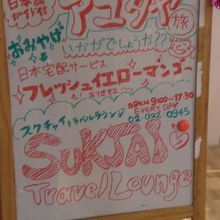 日本語
ガイド付
アユタヤ
旅
おみやげ
いかがでしょうか??
日本宅配サービス
フレッシュイエローマンゴー
スクチャイトラベルラウンジ
OPEN 9:00-17:30
EVERY DAY
SUKJAI
Travel Lounge